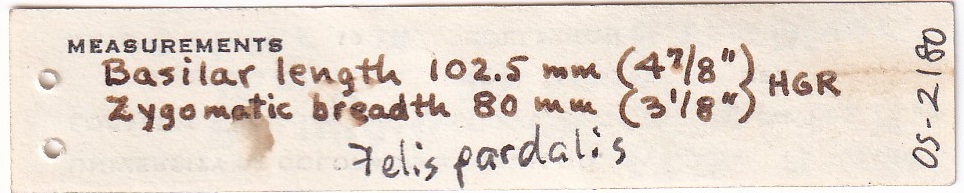 MEASUREMENTS
Basilar length 102.5 mm (4 7/8")
Zygomatic breadth 80 mm (3 1/8")
HGR
Felis pardalis
05-2180